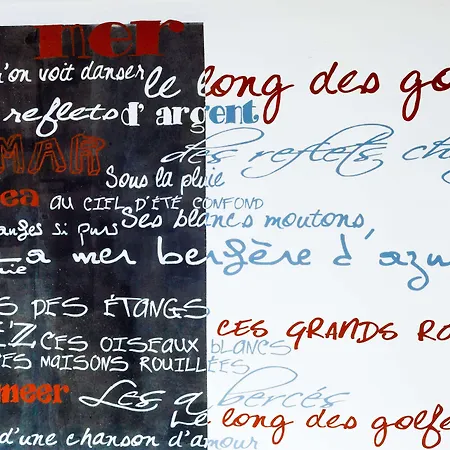 mer
u'on voit danser le long des go
reflets d'argent
MAR des reflets ch
Sous la pluie
ea AU CIEL D'ÉTÉ CONFOND
anges si purs Ses blancs moutons
La mer bergère d'azu
S DES ÉTANGS
EZ CES OISEAUX BLANCS CES GRANDS RO
ES MAISONS ROUILLÉES
meer Les a bercés
Le long des golfe
d'une chanson d'amour